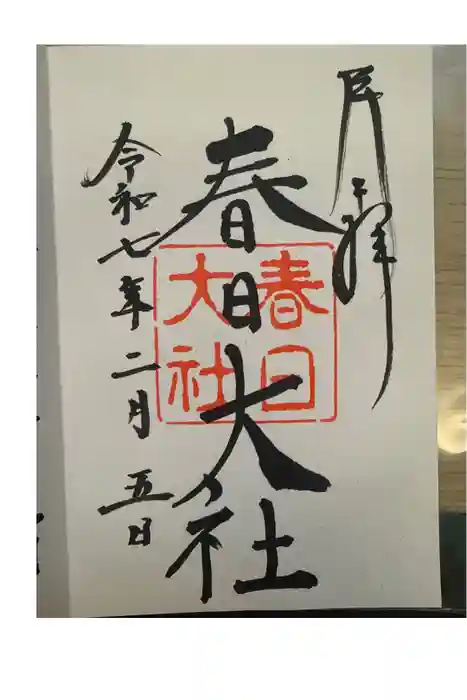 奉拝
春日大社
春日
大社
令和七年二月五日